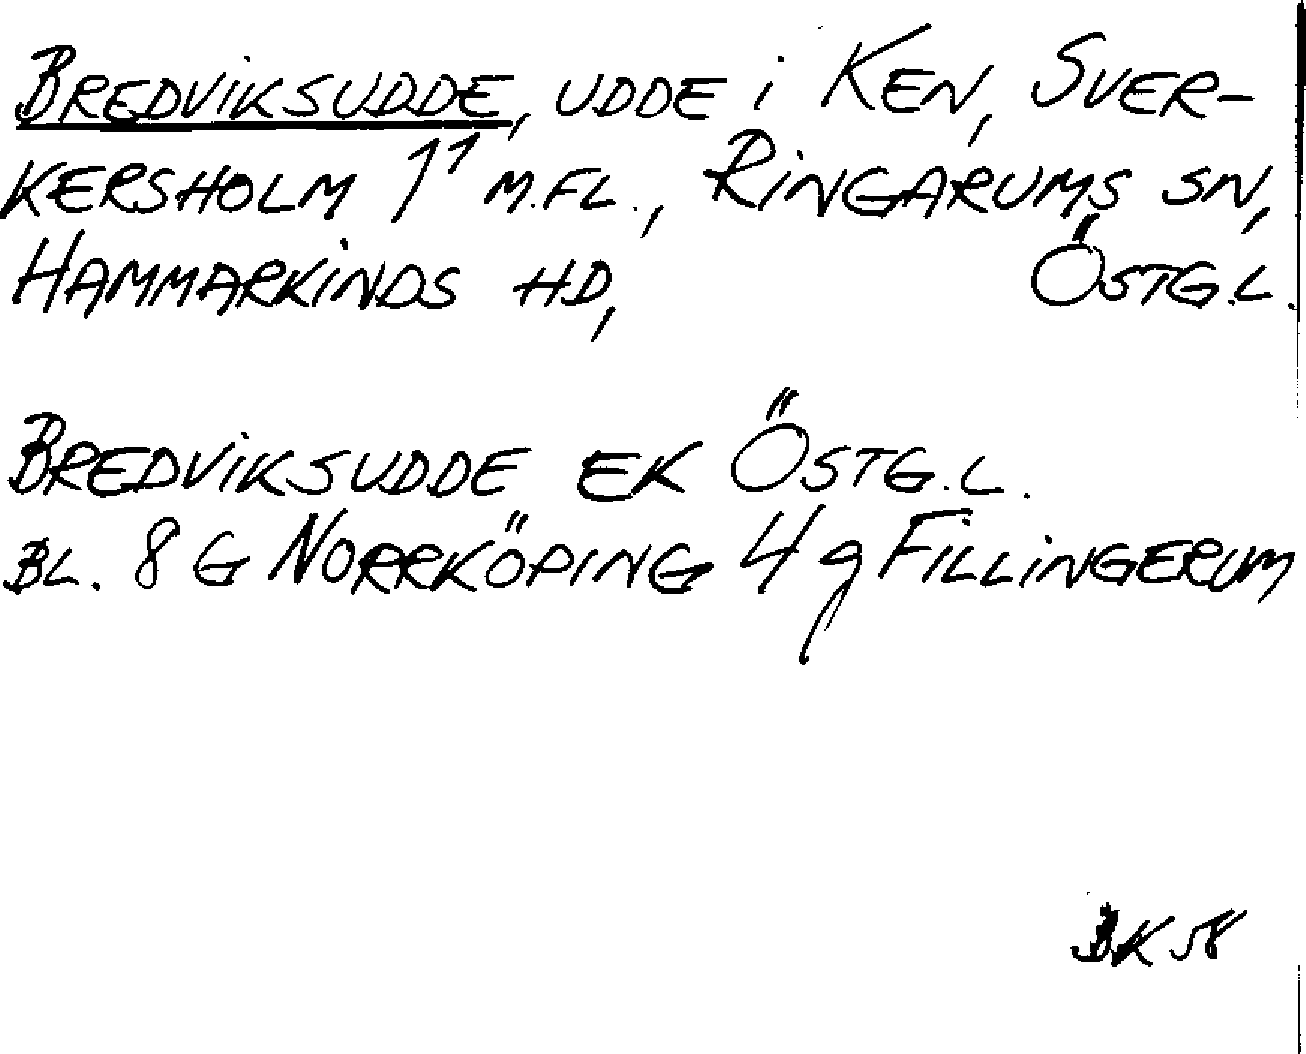 BREDVIKSUDDE, UDDE i KEN, SVER-
KERSHOLM 1¹ M.FL., RINGARUMS SN,
HAMMARKINDS HD, ÖSTG.L.
BREDVIKSUDDE EK ÖSTG.L.
BL. 8 G NORRKÖPING 4 g FILLINGERUM